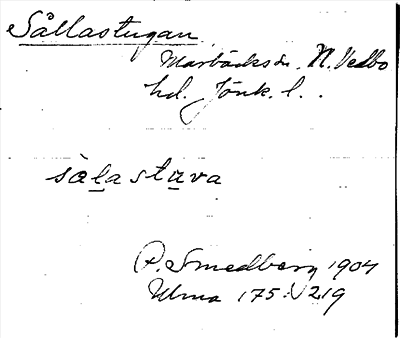 Sållastugan
Marbäcks sn. N. Vedbo
hd. Jönk. l.
sàlastuva
P. Smedberg 1904
Ulma 175:219